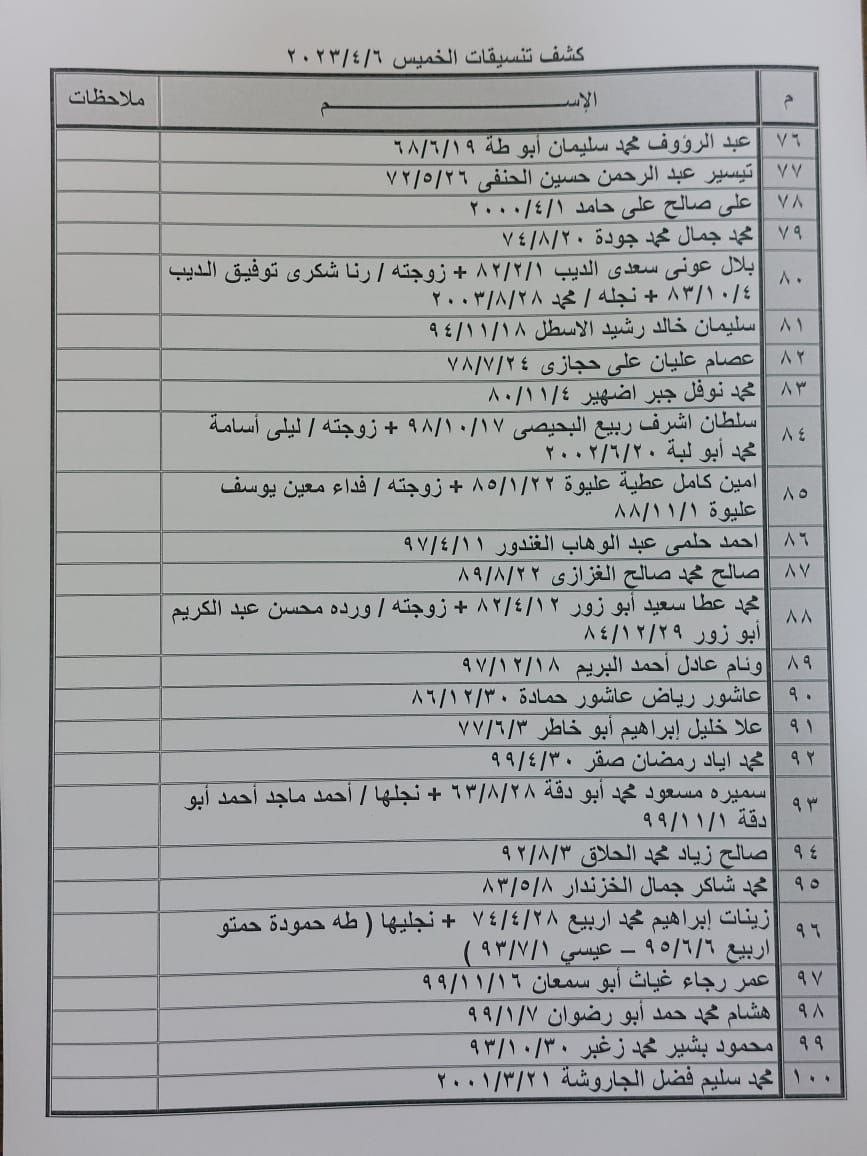 كشف تنسيقات الخميس ٢٠٢٣/٤/٦
م الإســـــــــم ملاحظات
٧٦ عبد الرؤوف محمد سليمان أبو طة ٦٨/٦/١٩
٧٧ تيسير عبد الرحمن حسين الحنفى ٧٢/٥/٢٦
٧٨ على صالح على حامد ٢٠٠٠/٤/١
٧٩ محمد جمال محمد جودة ٧٤/٨/٢٠
٨٠ بلال عونى سعدى الديب ٨٢/٢/١ + زوجته / رنا شكرى توفيق الديب
٨٣/١٠/٤ + نجله / محمد ٢٠٠٣/٨/٢٨
٨١ سليمان خالد رشيد الاسطل ٩٤/١١/١٨
٨٢ عصام عليان على حجازى ٧٨/٧/٢٤
٨٣ محمد نوفل جبر اضهير ٨٠/١١/٤
٨٤ سلطان اشرف ربيع البحيصى ٩٨/١٠/١٧ + زوجته / ليلى أسامة
محمد أبو لبة ٢٠٠٢/٦/٢٠
٨٥ امين كامل عطية عليوة ٨٥/١/٢٢ + زوجته / فداء معين يوسف
عليوة ٨٨/١١/١
٨٦ احمد حلمى عبد الوهاب الغندور ٩٧/٤/١١
٨٧ صالح محمد صالح الغزازى ٨٩/٨/٢٢
٨٨ محمد عطا سعيد أبو زور ٨٢/٤/١٢ + زوجته / ورده محسن عبد الكريم
أبو زور ٨٤/١٢/٢٩
٨٩ ونام عادل أحمد البريم ٩٧/١٢/١٨
٩٠ عاشور رياض عاشور حمادة ٨٦/١٢/٣٠
٩١ علا خليل إبراهيم أبو خاطر ٧٧/٦/٣
٩٢ محمد اياد رمضان صقر ٩٩/٤/٣٠
٩٣ سميره مسعود محمد أبو دقة ٦٣/٨/٢٨ + نجلها / أحمد ماجد أحمد أبو
دقة ٩٩/١١/١
٩٤ صالح زياد محمد الحلاق ٩٢/٨/٣
٩٥ محمد شاكر جمال الخزندار ٨٣/٥/٨
٩٦ زينات إبراهيم محمد اربيع ٧٤/٤/٢٨ + نجليها ( طه حمودة حمتو
اربيع ٩٥/٦/٦ – عيسي ٩٣/٧/١ )
٩٧ عمر رجاء غياث أبو سمعان ٩٩/١١/١٦
٩٨ هشام محمد حمد أبو رضوان ٩٩/١/٧
٩٩ محمود بشير محمد زغبر ٩٣/١٠/٣٠
١٠٠ محمد سليم فضل الجاروشة ٢٠٠١/٣/٢١